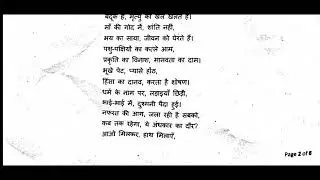 बंदूक है, मृत्यु का खेल खेलते हैं।
माँ की गोद में, शांति नहीं,
भय का साया, जीवन को घेरते हैं।
पशु-पक्षियों का कत्ले आम,
प्रकृति का विनाश, मानवता का दाम।
भूखे पेट, प्यासे होंठ,
हिंसा का दानव, करता है शोषण।
धर्म के नाम पर, लड़ाइयाँ छिड़ी,
भाई-भाई में, दुश्मनी पैदा हुई।
नफरत की आग, जला रही है सबको,
कब तक रहेगा, ये अंधकार का दौर?
आओ मिलकर, हाथ मिलाएँ,
Page 2 of 8